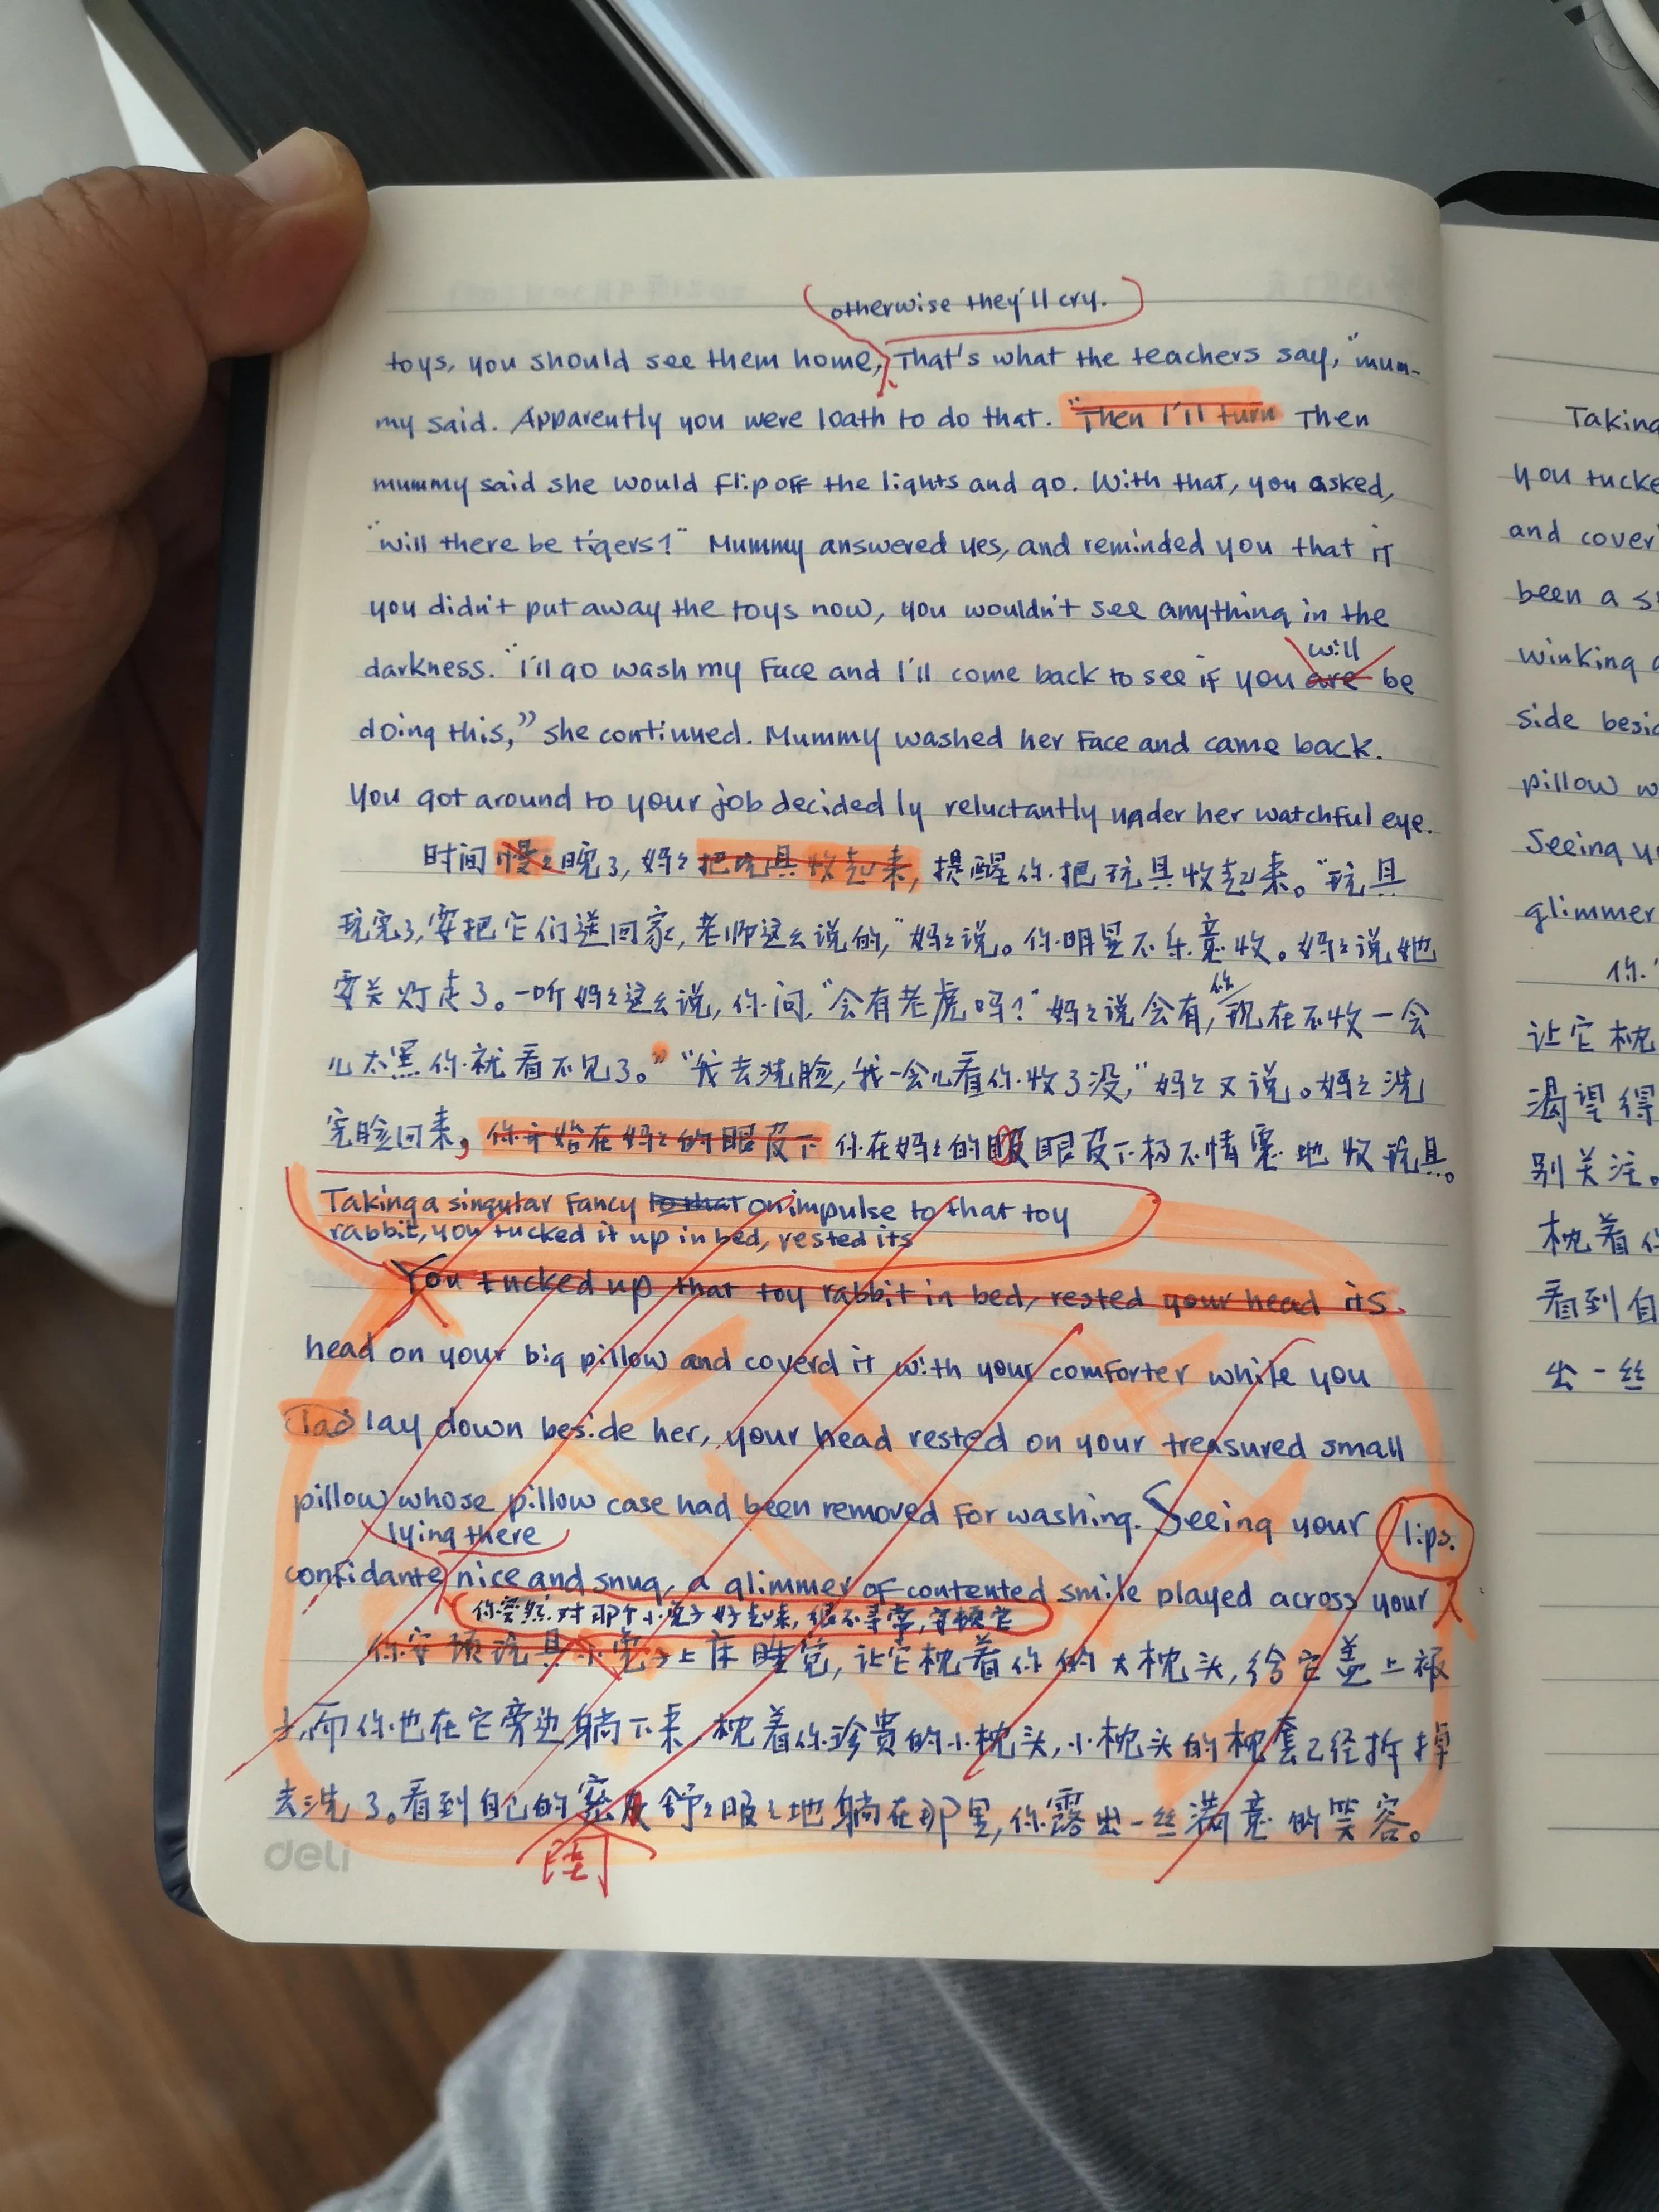 otherwise they'll cry.
toys, you should see them home, That's what the teachers say," mum-
my said. Apparently you were loath to do that. "Then I'll turn Then
mummy said she would flip off the lights and go. With that, you asked,
"will there be tigers?" Mummy answered yes, and reminded you that if
you didn't put away the toys now, you wouldn't see anything in the
will
darkness. "I'll go wash my face and I'll come back to see if you are be
doing this," she continued. Mummy washed her face and came back.
You got around to your job decidedly reluctantly under her watchful eye.
时间慢慢晚了,妈妈把玩具收起来,提醒你把玩具收起来。"玩具
玩完了,要把它们送回家,老师这么说的,"妈妈说。你明显不乐意收。妈妈说她
你
要关灯走了。一听妈妈这么说,你问,"会有老虎吗?"妈妈说会有,现在不收一会
儿太黑你就看不见了。" "我去洗脸,我一会儿看你收了没,"妈妈又说。妈妈洗
完脸回来,你开始在妈妈的眼皮下你在妈妈的眼皮下极不情愿地收玩具。
Taking a singular fancy to that on impulse to that toy
rabbit, you tucked it up in bed, rested its
You tucked up that toy rabbit in bed, rested your head its
head on your big pillow and coverd it with your comforter while you
lad lay down beside her, your head rested on your treasured small
pillow whose pillow case had been removed for washing. Seeing your lips.
lying there
confidante nice and snug, a glimmer of contented smile played across your
你突然对那个小兔子好起来,很不寻常,安顿它
你安顿玩具小兔子上床睡觉,让它枕着你的大枕头,给它盖上被
子,而你也在它旁边躺下来,枕着你珍贵的小枕头,小枕头的枕套已经拆掉
去洗了。看到自己的密友舒舒服服地躺在那里,你露出一丝满意的笑容。
deli
Taking
you tucke
and cover
been a s
winking
side besid
pillow w
Seeing y
glimmer
你
让它枕
渴望得
别关注。
枕着你
看到自
出一丝